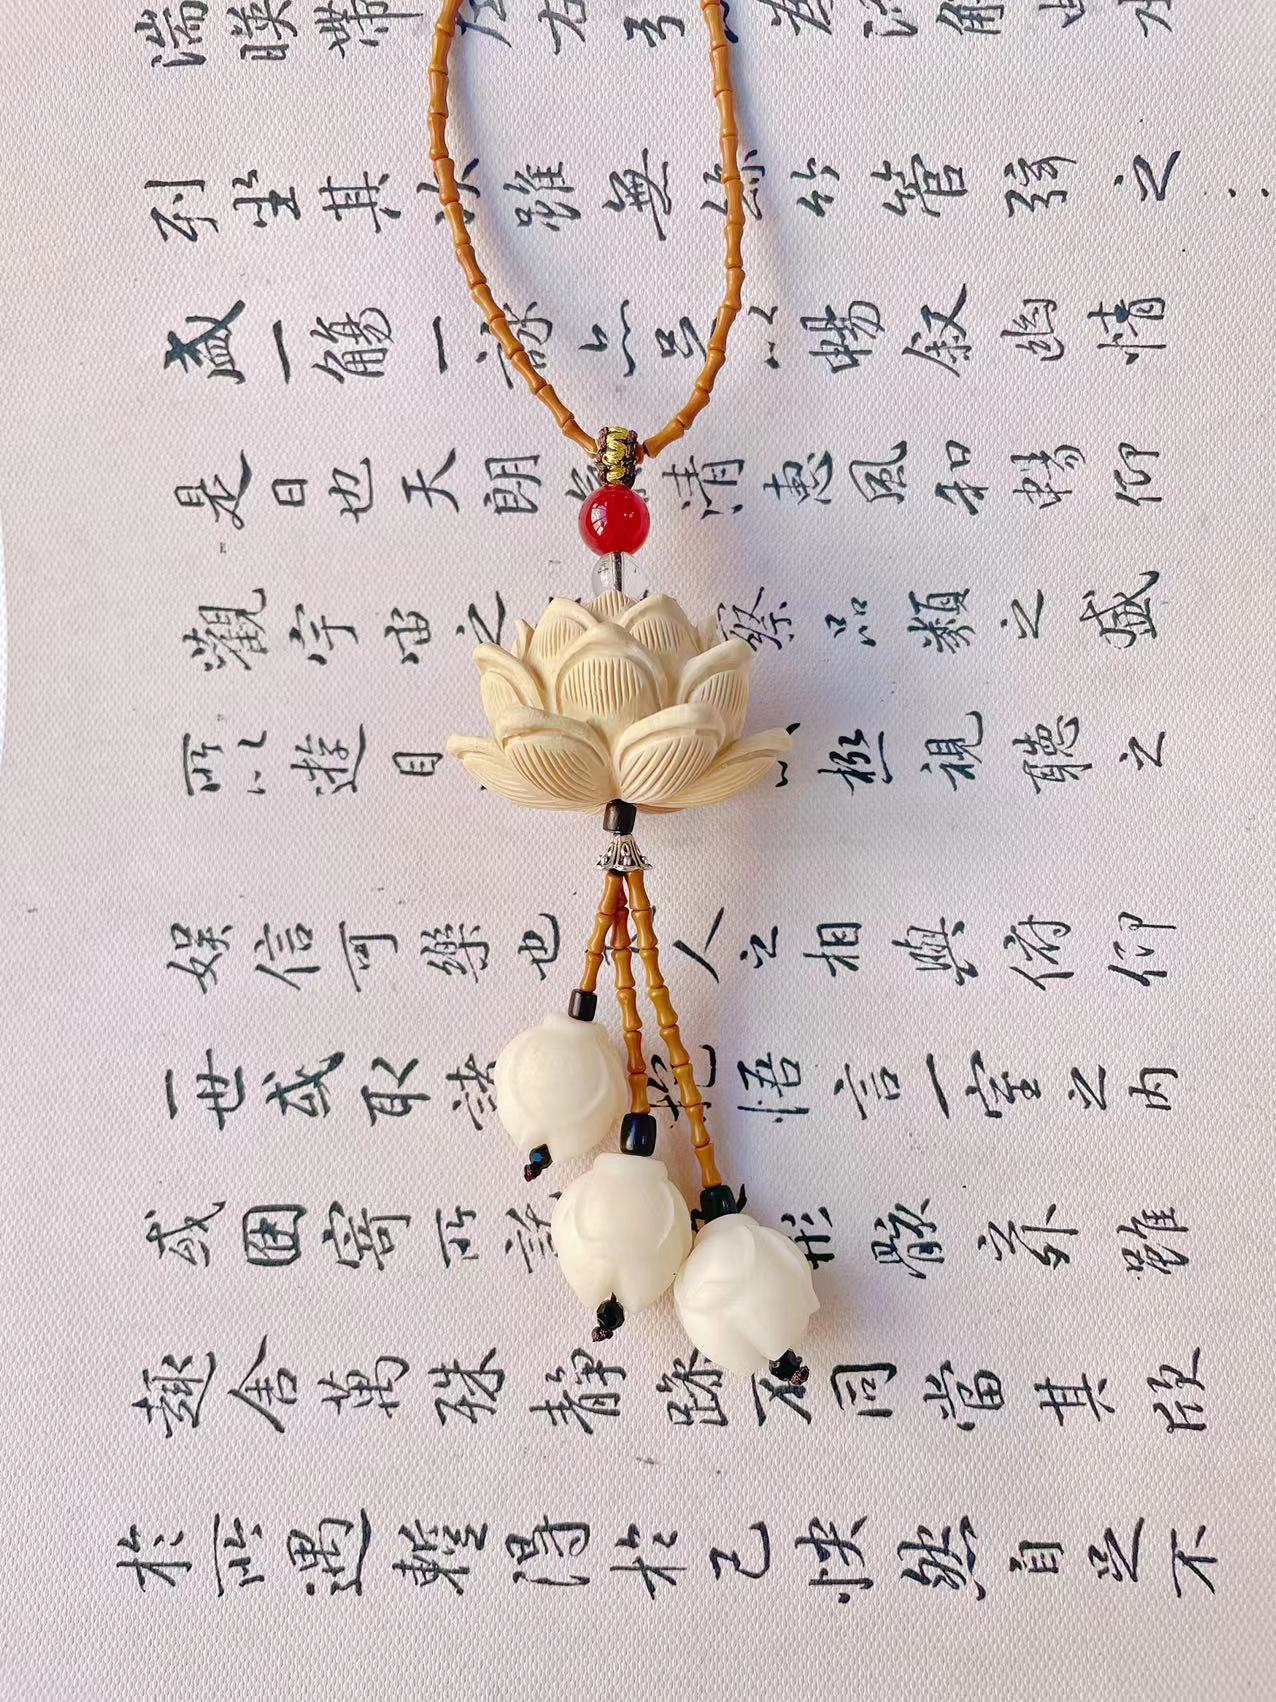 湍暎帶左右引為流觴曲水
列坐其次雖無絲竹管弦之
盛一觴一詠亦足以暢叙幽情
是日也天朗氣清惠風和暢仰
觀宇宙之察品類之盛
所以遊目以極視聽之
娛信可樂也人之相與俯仰
一世或取諸抱悟言一室之內
或因寄所託形骸之外雖
趣舍萬殊靜躁不同當其欣
於所遇輙得於己怏然自足不